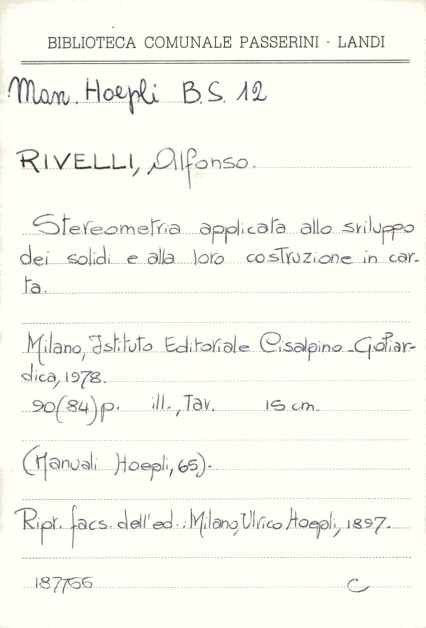 BIBLIOTECA COMUNALE PASSERINI - LANDI
Man. Hoepli B.S. 12
RIVELLI, Alfonso.
Stereometria applicata allo sviluppo
dei solidi e alla loro costruzione in car-
ta.
Milano, Istituto Editoriale Cisalpino-Goliar-
dica, 1978.
90(84)p. ill., Tav. 15 cm.
(Manuali Hoepli, 65).
Ripr. facs. dell'ed.: Milano, Ulrico Hoepli, 1897.
187766 C